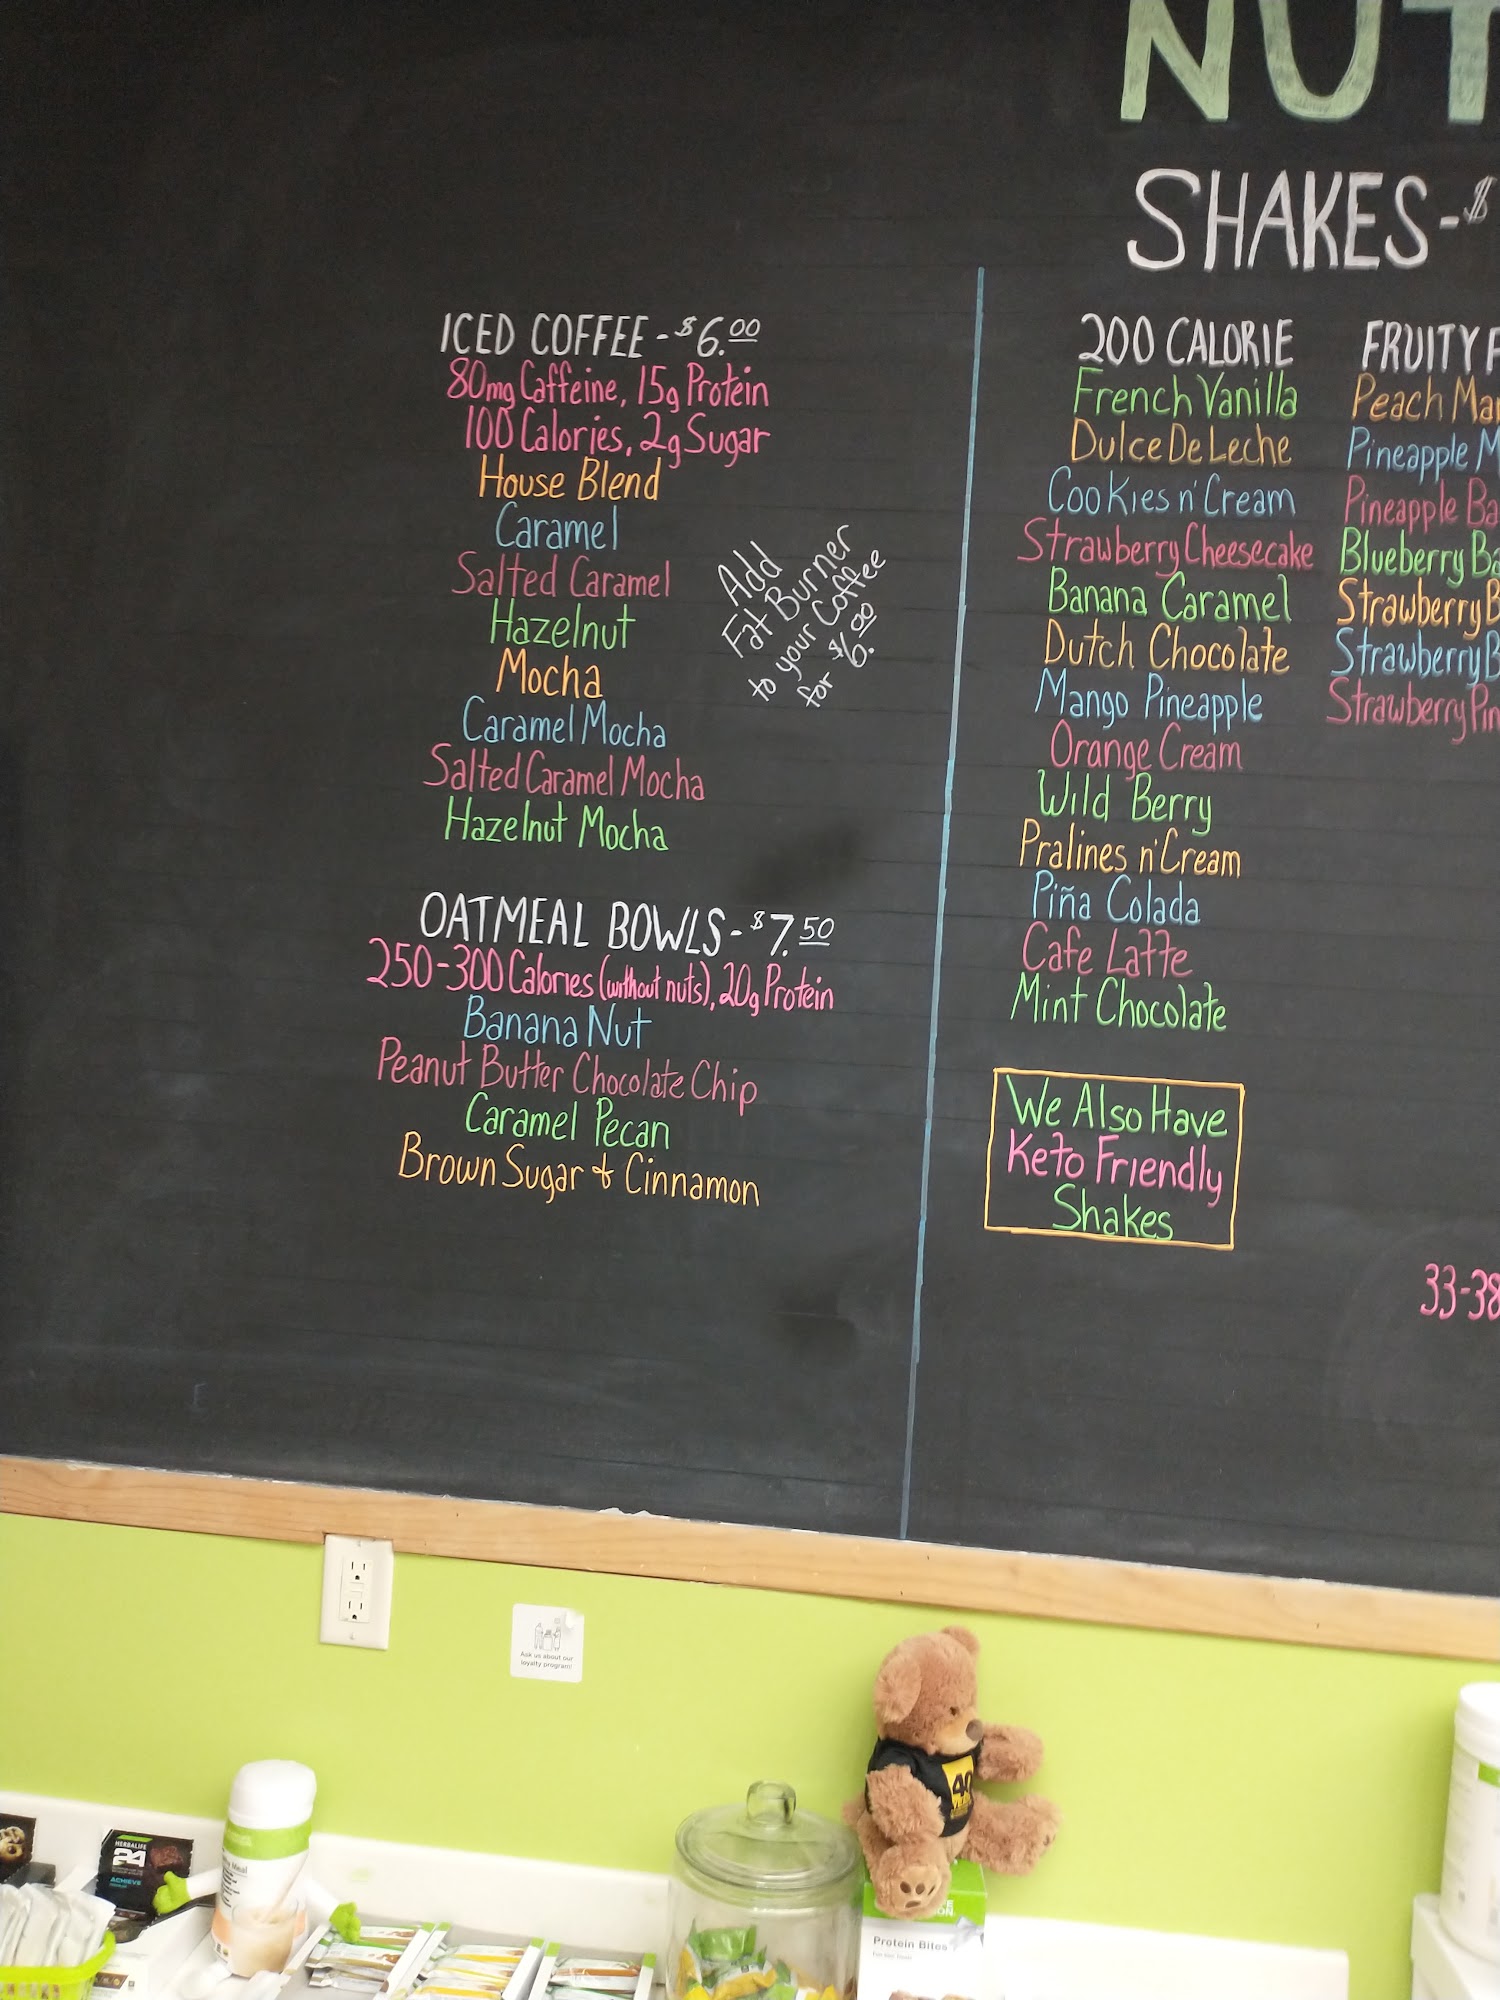 NUT
SHAKES-$
ICED COFFEE-$6.00
80mg Caffeine, 15g Protein
100 Calories, 2g Sugar
House Blend
Caramel
Salted Caramel
Hazelnut
Mocha
Caramel Mocha
Salted Caramel Mocha
Hazelnut Mocha
Add
Fat Burner
to your Coffee
for $6.00
OATMEAL BOWLS-$7.50
250-300 Calories (without nuts), 20g Protein
Banana Nut
Peanut Butter Chocolate Chip
Caramel Pecan
Brown Sugar & Cinnamon
200 CALORIE
French Vanilla
Dulce De Leche
Cookies n' Cream
Strawberry Cheesecake
Banana Caramel
Dutch Chocolate
Mango Pineapple
Orange Cream
Wild Berry
Pralines n' Cream
Piña Colada
Cafe Latte
Mint Chocolate
We Also Have
Keto Friendly
Shakes
FRUITY F
Peach Ma
Pineapple M
Pineapple Ba
Blueberry Ba
Strawberry B
Strawberry B
Strawberry Pin
33-38
Ask us about our
loyalty program!
HERBALIFE
24
ACHIEVE
Meal
40
Protein Bites